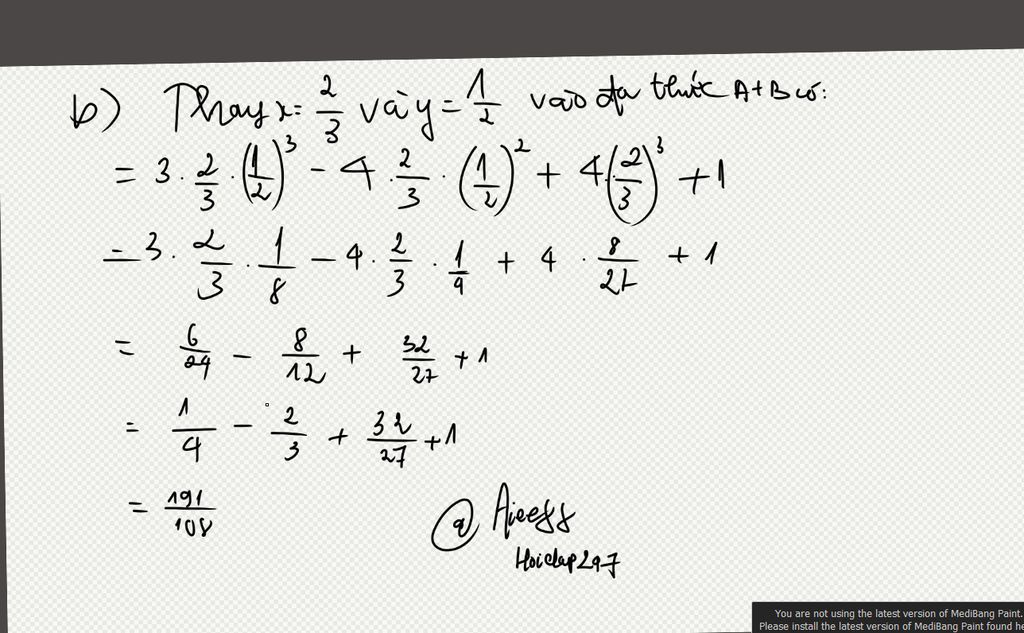 b) Thay x = 2/3 và y = 1/2 vào đa thức A+B có:
= 3 . 2/3 . (1/2)³ - 4 . 2/3 . (1/2)² + 4 . (2/3)³ + 1
= 3 . 2/3 . 1/8 - 4 . 2/3 . 1/4 + 4 . 8/27 + 1
= 6/24 - 8/12 + 32/27 + 1
= 1/4 - 2/3 + 32/27 + 1
= 191/108
@ Aiees
Hoidap247
You are not using the latest version of MediBang Paint.
Please install the latest version of MediBang Paint found he